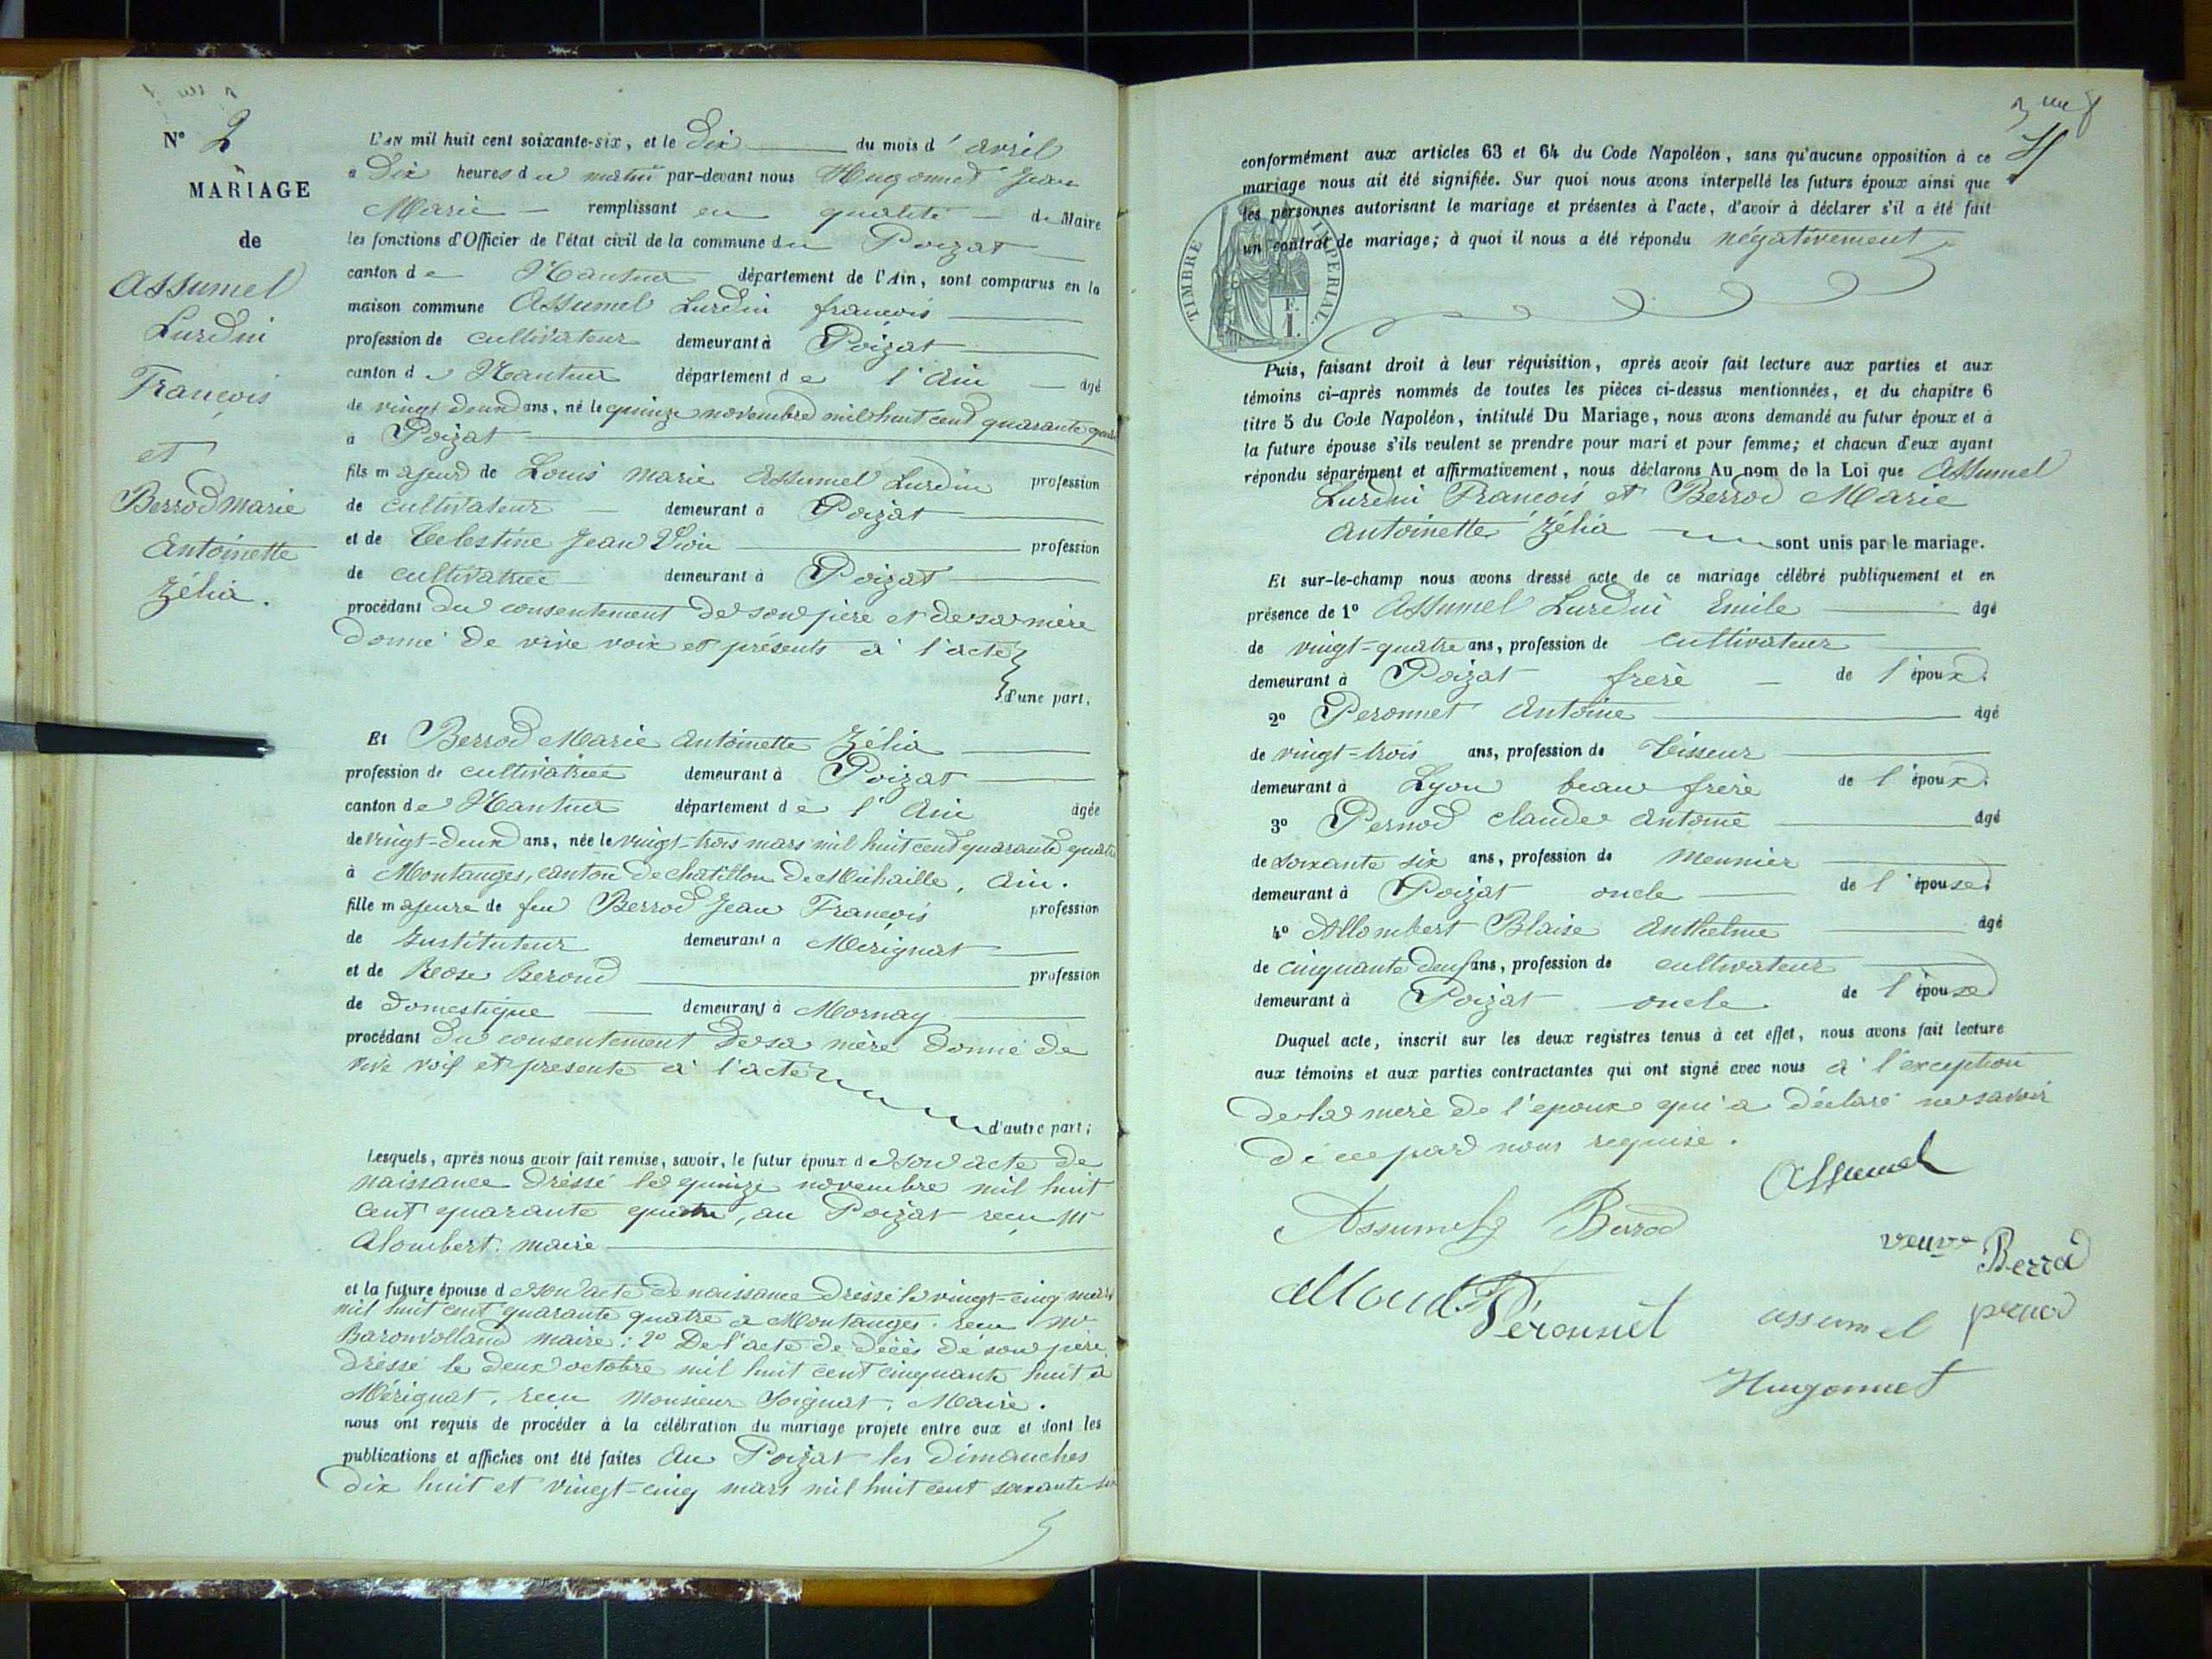 N° 2
MARIAGE
de
Assumel
Lurdin
François
et
Berrod Marie
Antoinette
Zélia.
L'AN mil huit cent soixante-six, et le Dix du mois d'avril
à Dix heures du matin par-devant nous Hugonnet Jean
Marie remplissant en qualité de Maire
les fonctions d'Officier de l'état civil de la commune du Poizat
canton de Nantua département de l'Ain, sont comparus en la
maison commune Assumel Lurdin françois
profession de cultivateur demeurant à Poizat
canton de Nantua département de l'Ain âgé
de vingt deux ans, né le quinze novembre mil huit cent quarante quatre
à Poizat
fils majeur de Louis marie Assumel Lurdin profession
de cultivateur demeurant à Poizat
et de Celestine Jean Vion profession
de cultivatrice demeurant à Poizat
procédant du consentement de son père et de sa mère
donné de vive voix et présents à l'acte
d'une part.
Et Berrod Marie Antoinette Zélia
profession de cultivatrice demeurant à Poizat
canton de Nantua département de l'Ain âgée
de vingt-deux ans, née le vingt-trois mars mil huit cent quarante quatre
à Montanges, canton de chatillon de Michaille, Ain.
fille majeure de feu Berrod Jean François profession
de Instituteur demeurant à Mérignat
et de Rose Beroud profession
de Domestique demeurant à Mornay
procédant du consentement de sa mère donné de
vive voix et presente à l'acte
d'autre part;
Lesquels, après nous avoir fait remise, savoir, le futur époux de son acte de
naissance dressé le quinze novembre mil huit
cent quarante quatre, au Poizat reçu Mr
Alombert. maire
et la future épouse de son acte de naissance dressé le vingt-cinq mars
mil huit cent quarante quatre à Montanges. reçu Mr
Baronvolland maire: 2° De l'acte de décès de son père,
dressé le deux octobre mil huit cent cinquante huit à
Mérignat, reçu Monsieur Soignat, Maire.
nous ont requis de procéder à la célébration du mariage projeté entre eux et dont les
publications et affiches ont été faites au Poizat les dimanches
dix huit et vingt-cinq mars mil huit cent soixante six
conformément aux articles 63 et 64 du Code Napoléon, sans qu'aucune opposition à ce
mariage nous ait été signifiée. Sur quoi nous avons interpellé les futurs époux ainsi que
les personnes autorisant le mariage et présentes à l'acte, d'avoir à déclarer s'il a été fait
un contrat de mariage; à quoi il nous a été répondu négativement
TIMBRE IMPERIAL.
F.
1.
Puis, faisant droit à leur réquisition, après avoir fait lecture aux parties et aux
témoins ci-après nommés de toutes les pièces ci-dessus mentionnées, et du chapitre 6
titre 5 du Code Napoléon, intitulé Du Mariage, nous avons demandé au futur époux et à
la future épouse s'ils veulent se prendre pour mari et pour femme; et chacun d'eux ayant
répondu séparément et affirmativement, nous déclarons Au nom de la Loi que Assumel
Lurdin François et Berrod Marie
Antoinette Zélia sont unis par le mariage.
Et sur-le-champ nous avons dressé acte de ce mariage célébré publiquement et en
présence de 1° Assumel Lurdin Emile âgé
de vingt-quatre ans, profession de cultivateur
demeurant à Poizat frère de l'époux.
2° Peronnet Antoine âgé
de vingt-trois ans, profession de Tisseur
demeurant à Lyon beau frère de l'époux.
3° Pernod claude Antoine âgé
de soixante six ans, profession de Meunier
demeurant à Poizat oncle de l'épouse.
4° Allombert Blaise Anthelme âgé
de cinquante deux ans, profession de cultivateur
demeurant à Poizat oncle de l'épouse
Duquel acte, inscrit sur les deux registres tenus à cet effet, nous avons fait lecture
aux témoins et aux parties contractantes qui ont signé avec nous à l'exception
de la mère de l'époux qui a déclaré ne savoir
de ce par nous requise.
Assumel
Assumel Berrod
veuve Berrod
Peronnet assumel
Hugonnet